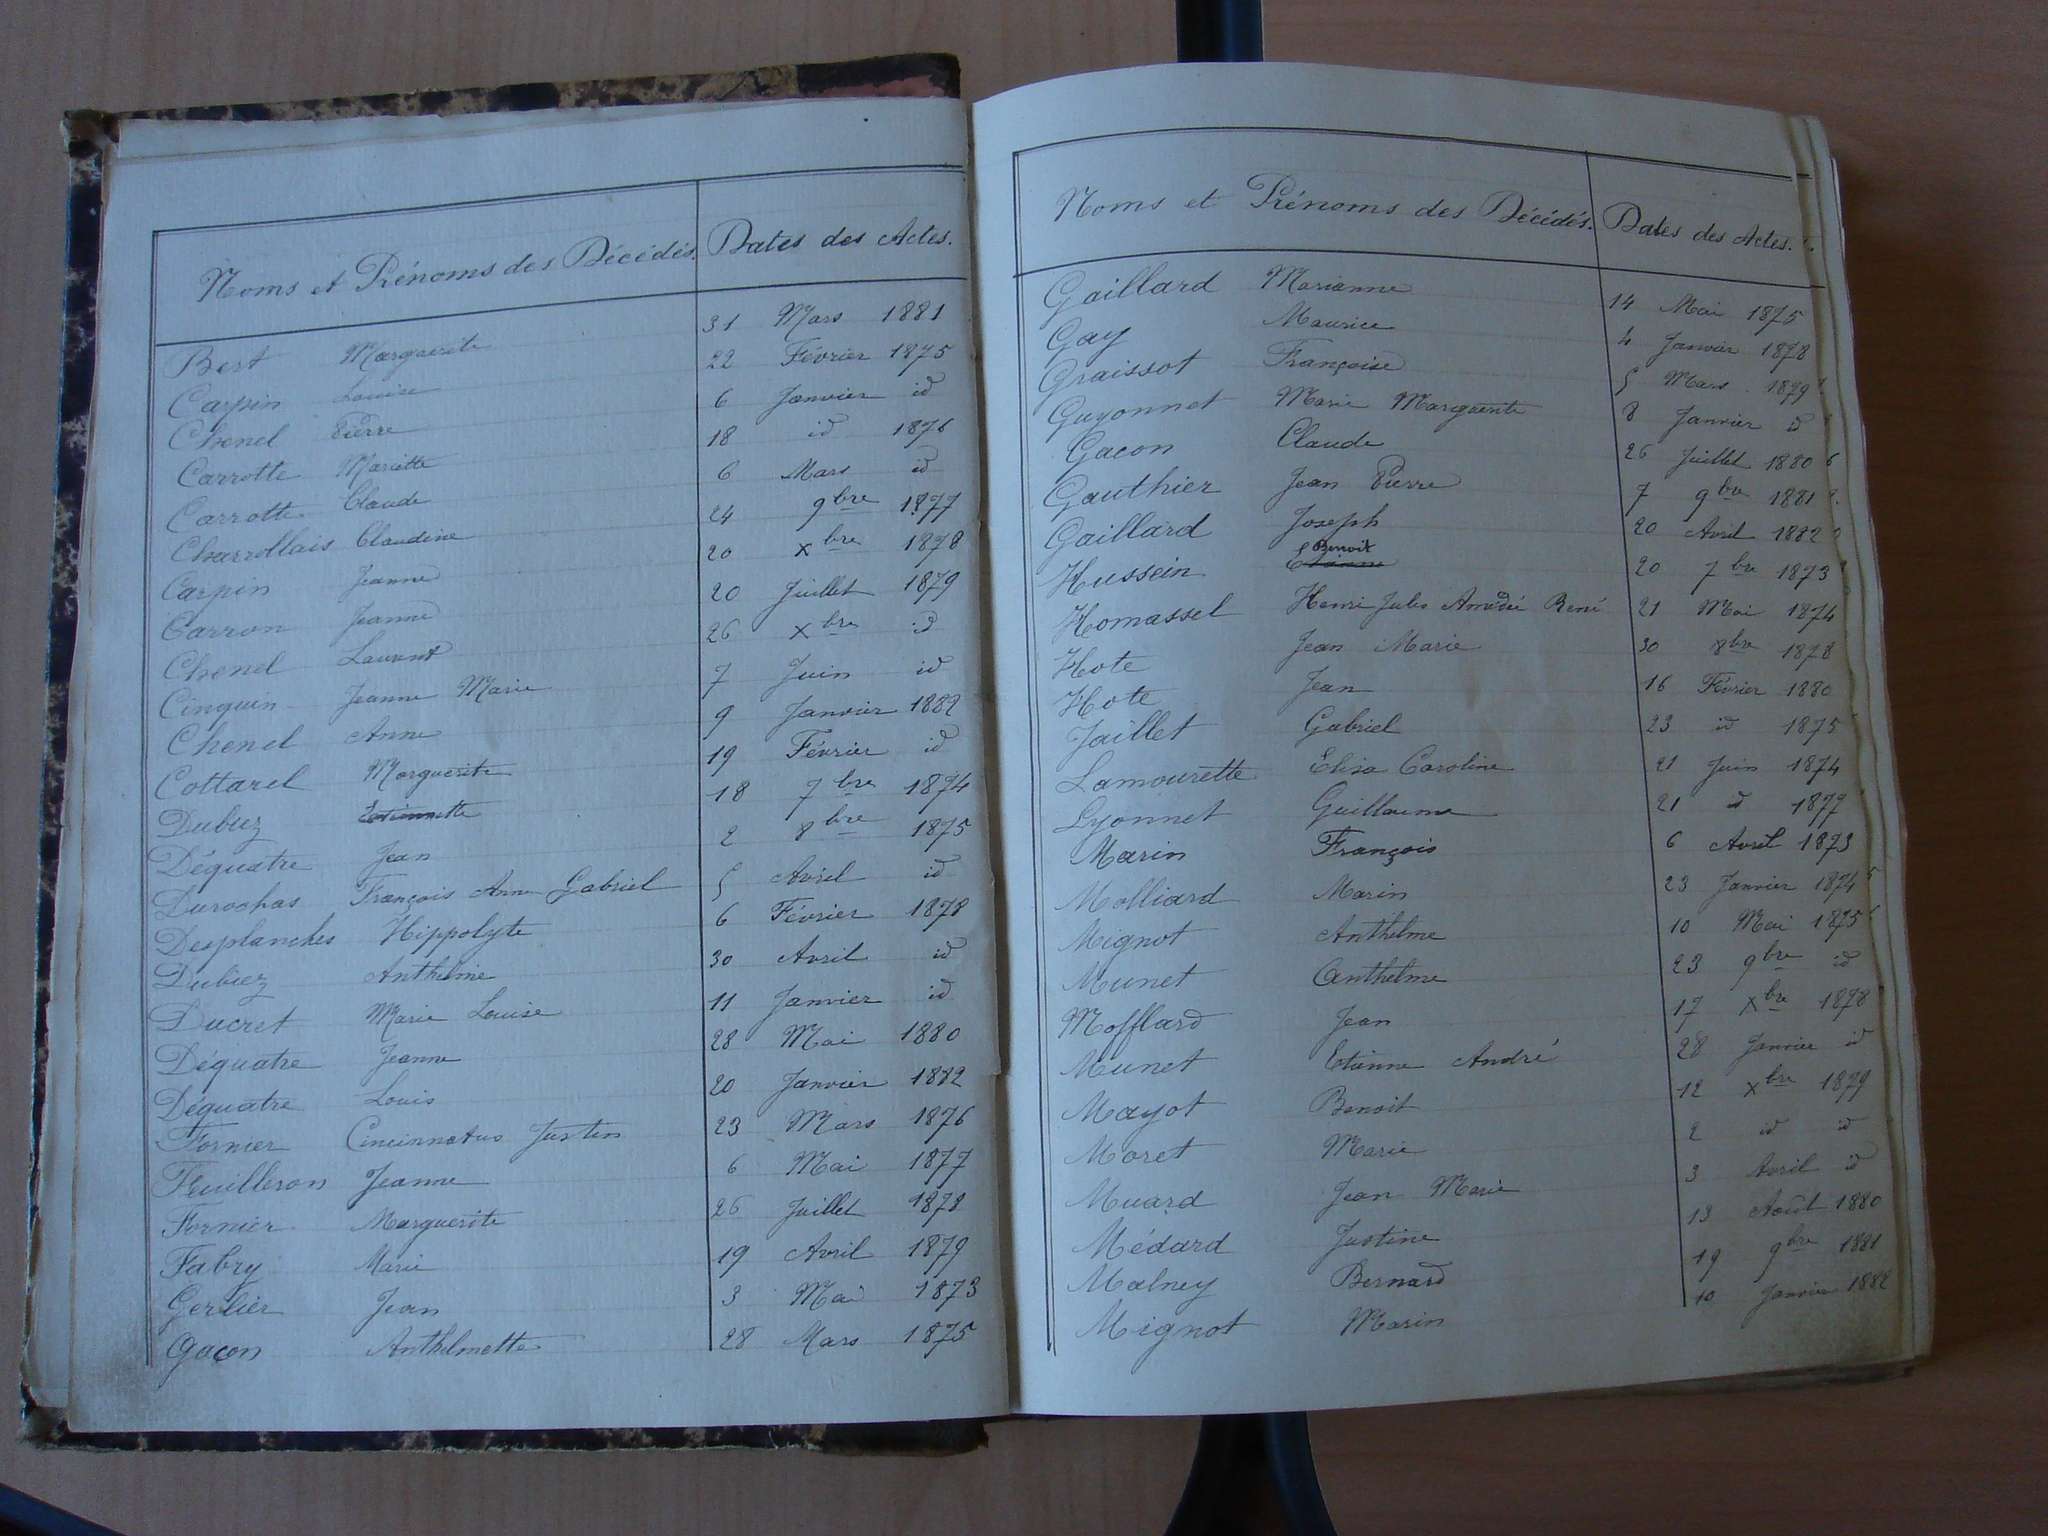 Noms et Prénoms des Décédés. Dates des Actes.
Bert Marguerite 31 Mars 1881
Carpin Louise 22 Février 1875
Chenel Pierre 6 Janvier id
Carrotte Mariette 18 id 1876
Carrotte Claude 6 Mars id
Charrollais Claudine 24 9bre 1877
Carpin Jeanne 20 xbre 1878
Carron Jeanne 20 Juillet 1879
Chenel Laurent 26 xbre id
Cinquin Jeanne Marie 7 Juin id
Chenel Anne 9 Janvier 1882
Cottarel Marguerite 19 Février id
Dubuz Etiennette 18 7bre 1874
Déquatre Jean 2 8bre 1875
Durochas François Anne Gabriel 5 Avril id
Desplanches Hippolyte 6 Février 1878
Dubiez Anthelme 30 Avril id
Ducret Marie Louise 11 Janvier id
Déquatre Jeanne 28 Mai 1880
Déquatre Louis 20 Janvier 1882
Fornier Cincinnatus Justin 23 Mars 1876
Feuilleron Jeanne 6 Mai 1877
Fornier Marguerite 26 Juillet 1878
Fabry Marie 19 Avril 1879
Gerlier Jean 3 Mai 1873
Gaçon Anthelmette 28 Mars 1875
Noms et Prénoms des Décédés. Dates des Actes.
Gaillard Marianne 14 Mai 1875
Gay Maurice 4 Janvier 1878
Graissot Françoise 5 Mars 1879
Guyonnet Marie Marguerite 8 Janvier id
Gacon Claude 26 Juillet 1880
Gauthier Jean Pierre 7 9bre 1881
Gaillard Joseph 20 Avril 1882
Hussein Etienne Benoit 20 7bre 1873
Homassel Henri Jules Amédée René 21 Mai 1874
Hote Jean Marie 30 8bre 1878
Hote Jean 16 Février 1880
Jaillet Gabriel 23 id 1875
Lamourette Elisa Caroline 21 Juin 1874
Lyonnet Guillaume 21 id 1877
Marin François 6 Avril 1873
Molliard Marin 23 Janvier 1874
Mignot Anthelme 10 Mai 1875
Munet Anthelme 23 9bre id
Mofflard Jean 17 xbre 1878
Munet Etienne André 28 Janvier id
Mayot Benoit 12 xbre 1879
Moret Marie 2 id id
Muard Jean Marie 3 Avril id
Médard Justine 13 Août 1880
Malney Bernard 19 9bre 1881
Mignot Marin 10 Janvier 1882